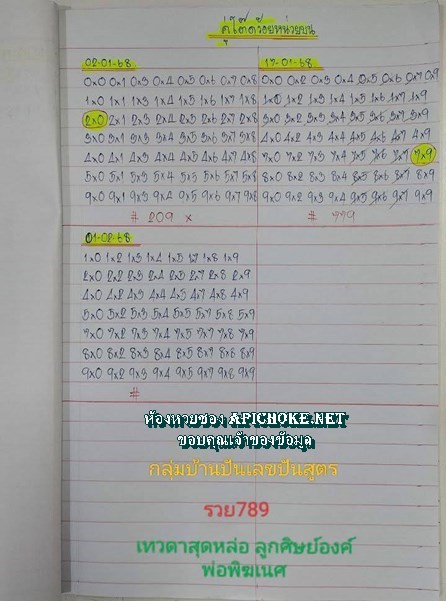 คู่โต๊ดร้อยหน่วยบน
02-01-68
0x0 0x1 0x3 0x4 0x5 0x6 0x7 0x8
1x0 1x1 1x3 1x4 1x5 1x6 1x7 1x8
2x0 2x1 2x3 2x4 2x5 2x6 2x7 2x8
3x0 3x1 3x3 3x4 3x5 3x6 3x7 3x8
4x0 4x1 4x3 4x4 4x5 4x6 4x7 4x8
5x0 5x1 5x3 5x4 5x5 5x6 5x7 5x8
9x0 9x1 9x3 9x4 9x5 9x6 9x7 9x8
# 209 x
17-01-68
0x0 0x2 0x3 0x4 0x5 0x6 0x7 0x9
1x0 1x2 1x3 1x4 1x5 1x6 1x7 1x9
3x0 3x2 3x3 3x4 3x5 3x6 3x7 3x9
4x0 4x2 4x3 4x4 4x5 4x6 4x7 4x9
7x0 7x2 7x3 7x4 7x5 7x6 7x7 7x9
8x0 8x2 8x3 8x4 8x5 8x6 8x7 8x9
9x0 9x2 9x3 9x4 9x5 9x6 9x7 9x9
# 779
01-02-68
1x0 1x2 1x3 1x4 1x5 1x7 1x8 1x9
2x0 2x2 2x3 2x4 2x5 2x7 2x8 2x9
4x0 4x2 4x3 4x4 4x5 4x7 4x8 4x9
5x0 5x2 5x3 5x4 5x5 5x7 5x8 5x9
7x0 7x2 7x3 7x4 7x5 7x7 7x8 7x9
8x0 8x2 8x3 8x4 8x5 8x7 8x8 8x9
9x0 9x2 9x3 9x4 9x5 9x7 9x8 9x9
#
ห้องหวยซอง APICHOKE.NET
ขอบคุณเจ้าของข้อมูล
กลุ่มบ้านปันเลขปันสูตร
รวย789
เทวดาสุดหล่อ ลูกศิษย์องค์
พ่อพิฆเนศ